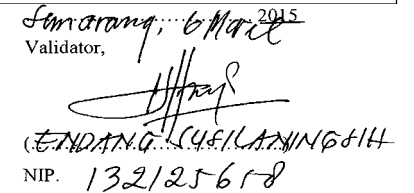 Semarang, 6 Maret 2015
Validator,
(ENDANG SUSILANINGSIH
NIP. 132125658